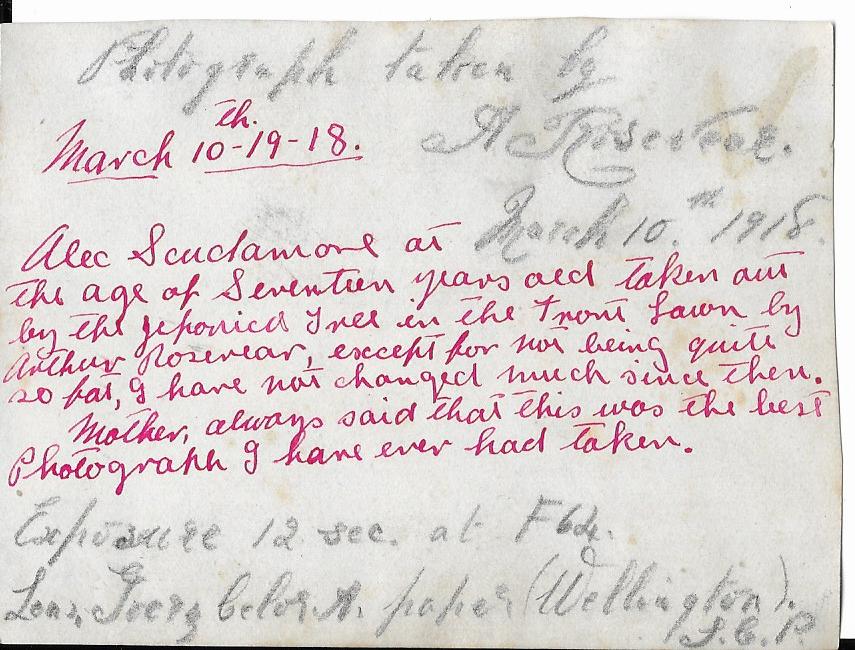 Photograph taken by
A Rosevear.
March 10th-19-18.
March 10.th 1918.
Alec Scudamore at
the age of Seventeen years old taken out
by the Jeponica Tree in the front Lawn by
Arthur Rosevear, except for not being quite
so fat, I have not changed much since then.
Mother, always said that this was the best
Photograph I have ever had taken.
Exposure 12 sec. at F64.
Lens, Goerz paper (Wellington).
S.C.P.